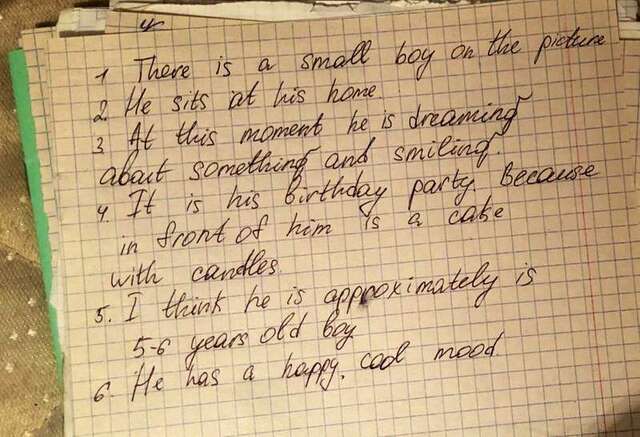 1 There is a small boy on the picture
2. He sits at his home.
3 At this moment he is dreaming
about something and smiling.
4. It is his birthday party. Because
in front of him is a cake
with candles.
5. I think he is approximately is
5-6 years old boy
6. He has a happy, cool mood.